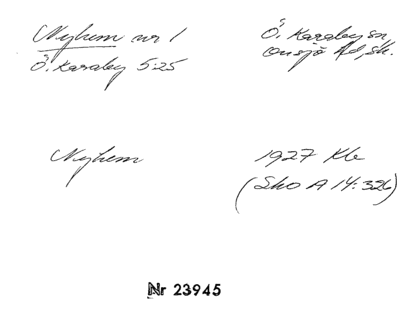 Nyhem nr 1
Ö. Karaby 5:25
Ö. Karaby sn,
Onsjö hd, sk.
Nyhem
1927 Kb
(Sko A 14:326)
Nr 23945